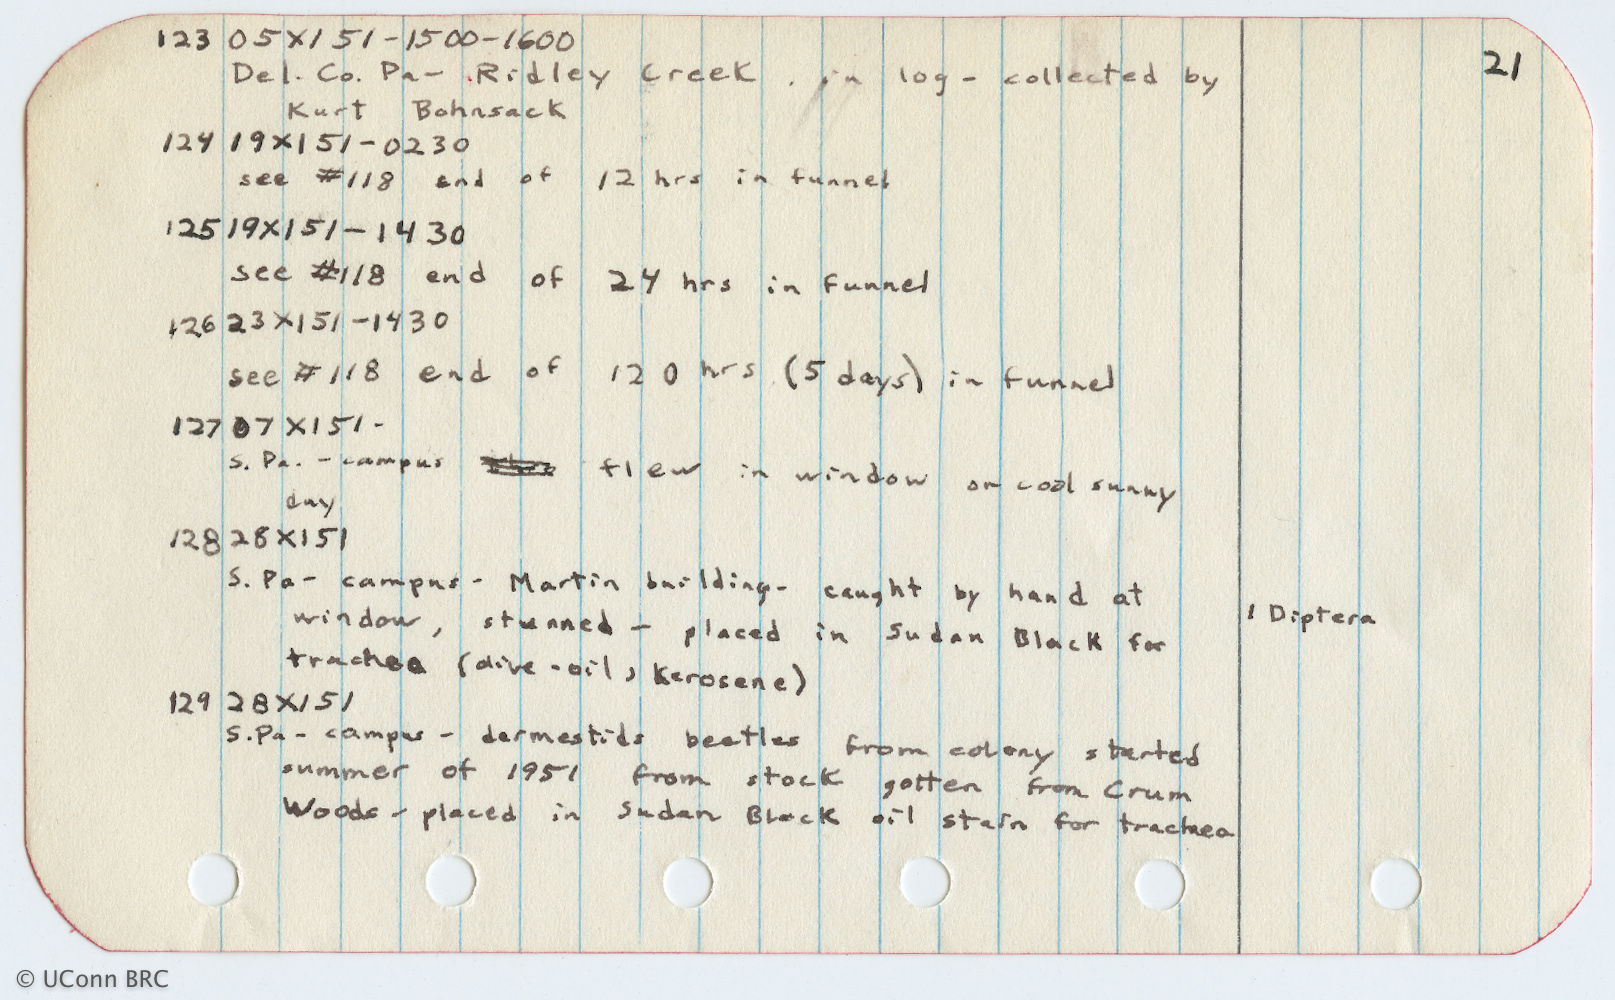 123 05XI51-1500-1600
21
Del. Co. Pa- Ridley Creek. in log- collected by
Kurt Bohnsack
124 19XI51-0230
see #118 end of 12 hrs in funnel
125 19XI51-1430
see #118 end of 24 hrs in funnel
126 23XI51-1430
see #118 end of 120 hrs (5 days) in funnel
127 07XI51-
S. Pa. - campus flew in window on cool sunny
day
128 28XI51
S. Pa- campus- Martin building- caught by hand at
window, stunned - placed in Sudan Black for
1 Diptera
trachea (olive-oil, kerosene)
129 28XI51
S.Pa- campus- dermestids beetles from colony started
summer of 1951 from stock gotten from Crum
Woods- placed in Sudan Black oil stain for trachea
© UConn BRC